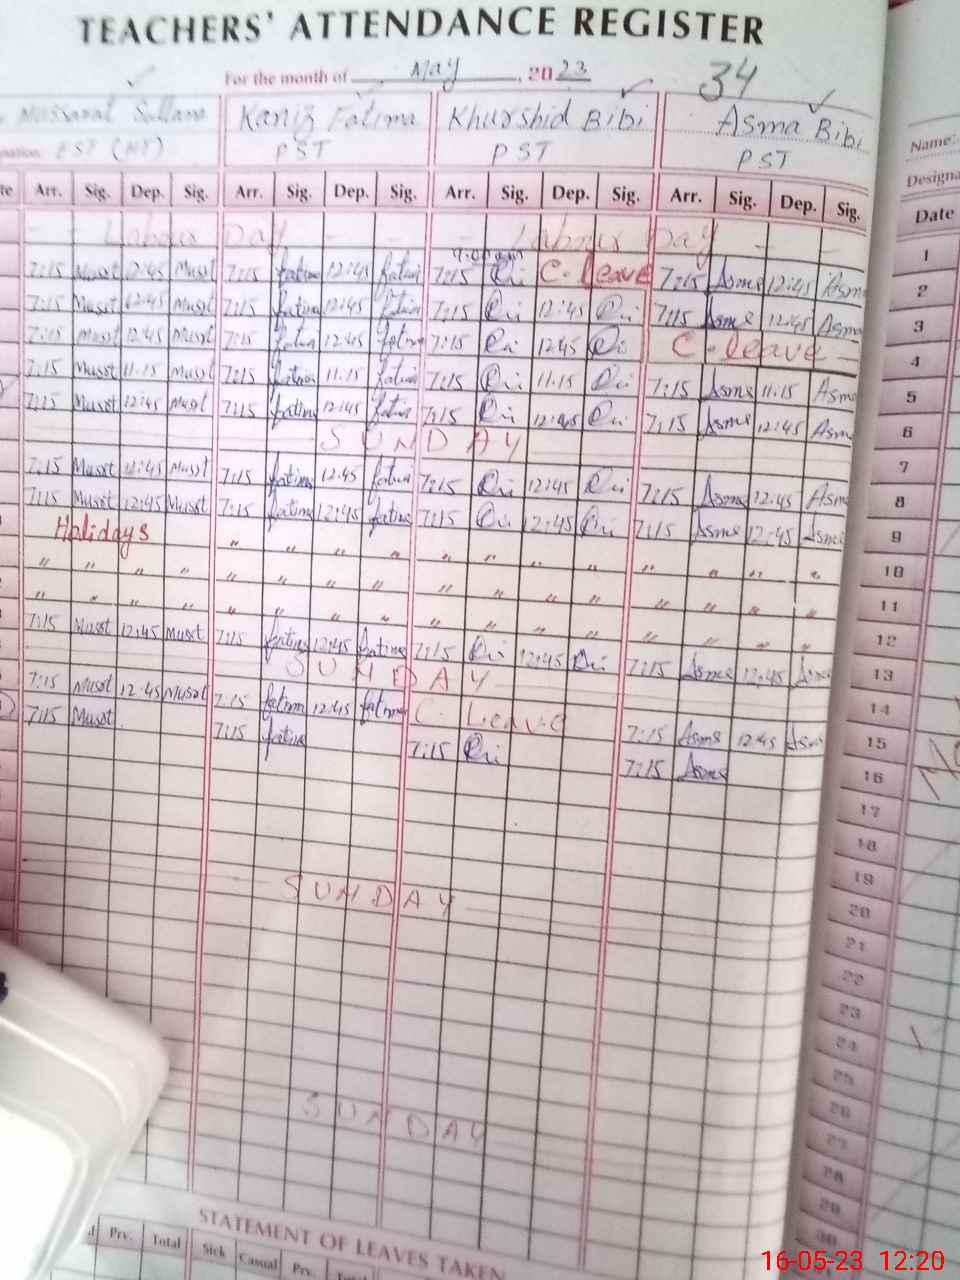 TEACHERS' ATTENDANCE REGISTER
For the month of May, 2023
34
Massarat Sultana Kaniz Fatima Khurshid Bibi Asma Bibi Name:
EST (HT) PST PST PST Designa
Arr. Sig. Dep. Sig. Arr. Sig. Dep. Sig. Arr. Sig. Dep. Sig. Arr. Sig. Dep. Sig. Date
Labour Day Labour Day 1
7:15 Musst 12:45 Musst 7:15 fatima 12:45 fatima 7:15 C. leave 7:15 Asma 12:45 Asma 2
7:15 Musst 12:45 Musst 7:15 fatima 12:45 fatima 7:15 12:45 7:15 Asma 12:45 Asma 3
7:15 Musst 12:45 Musst 7:15 fatima 12:45 fatima 7:15 12:45 C. leave 4
7:15 Musst 11.15 Musst 7:15 fatima 11.15 fatima 7:15 11.15 7:15 Asma 11.15 Asma 5
7:15 Musst 12:45 Musst 7:15 fatima 12:45 fatima 7:15 12:45 7:15 Asma 12:45 Asma 6
SUNDAY 7
7:15 Musst 12:45 Musst 7:15 fatima 12:45 fatima 7:15 12:45 7:15 Asma 12:45 Asma 8
7:15 Musst 12:45 Musst 7:15 fatima 12:45 fatima 7:15 12:45 7:15 Asma 12:45 Asma 9
Holidays " " " " " " " " " " 10
" " " " " " " " " " " " " " " " 11
" " " " " " " " " " " " " " " " 12
7:15 Musst 12:45 Musst 7:15 fatima 12:45 fatima 7:15 12:45 7:15 Asma 12:45 Asma 13
SUNDAY 14
7:15 Musst 12:45 Musst 7:15 fatima 12:45 fatima C. Leave 7:15 Asma 12:45 Asma 15
7:15 Musst 7:15 fatima 7:15 7:15 Asma 16
17
18
19
20
SUNDAY 21
22
23
24
25
26
27
SUNDAY 28
29
30
STATEMENT OF LEAVES TAKEN
Prv. Total Sick Casual Prv. Total
16-05-23 12:20